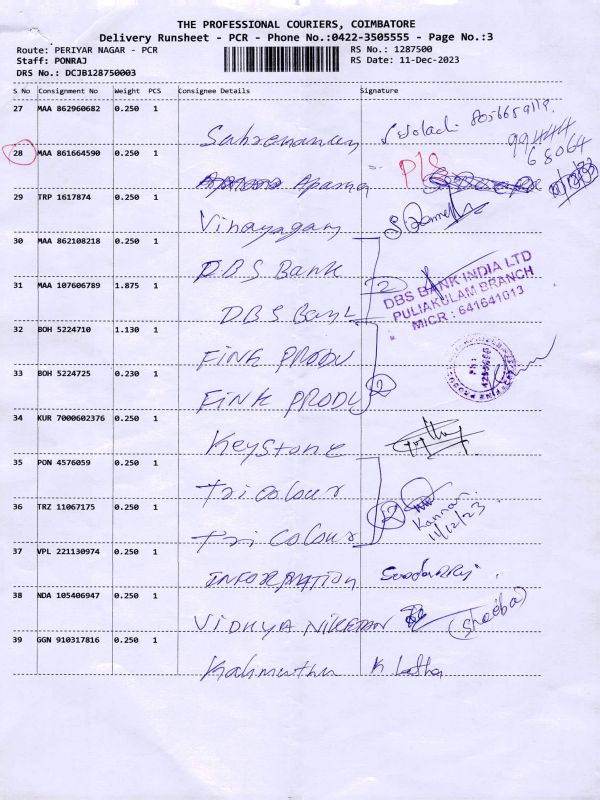 THE PROFESSIONAL COURIERS, COIMBATORE
Delivery Runsheet - PCR - Phone No.:0422-3505555 - Page No.:3
Route: PERIYAR NAGAR - PCR
RS No.: 1287500
Staff: PONRAJ
RS Date: 11-Dec-2023
DRS No.: DCJB128750003
S No Consignment No Weight PCS Consignee Details Signature
27 MAA 862960682 0.250 1
99444
68064
28 MAA 861664590 0.250 1
Aparna P/S
29 TRP 1617874 0.250 1
Vinayagam
30 MAA 862108218 0.250 1
DBS Bank
31 MAA 107606789 1.875 1
2
DBS BANK INDIA LTD
PULIAKULAM BRANCH
MICR : 641641013
DBS Bank
32 BOH 5224710 1.130 1
FINK PRODU
33 BOH 5224725 0.230 1
2
FINK PRODU
34 KUR 7000602376 0.250 1
Keystone
35 PON 4576059 0.250 1
Tricolour
36 TRZ 11067175 0.250 1
2
Kannan
11/12/23
Tri Colour
37 VPL 221130974 0.250 1
INFORMATION
38 NDA 105406947 0.250 1
VIDHYA NIKETAN (Sheeba)
39 GGN 910317816 0.250 1
Kalimuthu K Latha